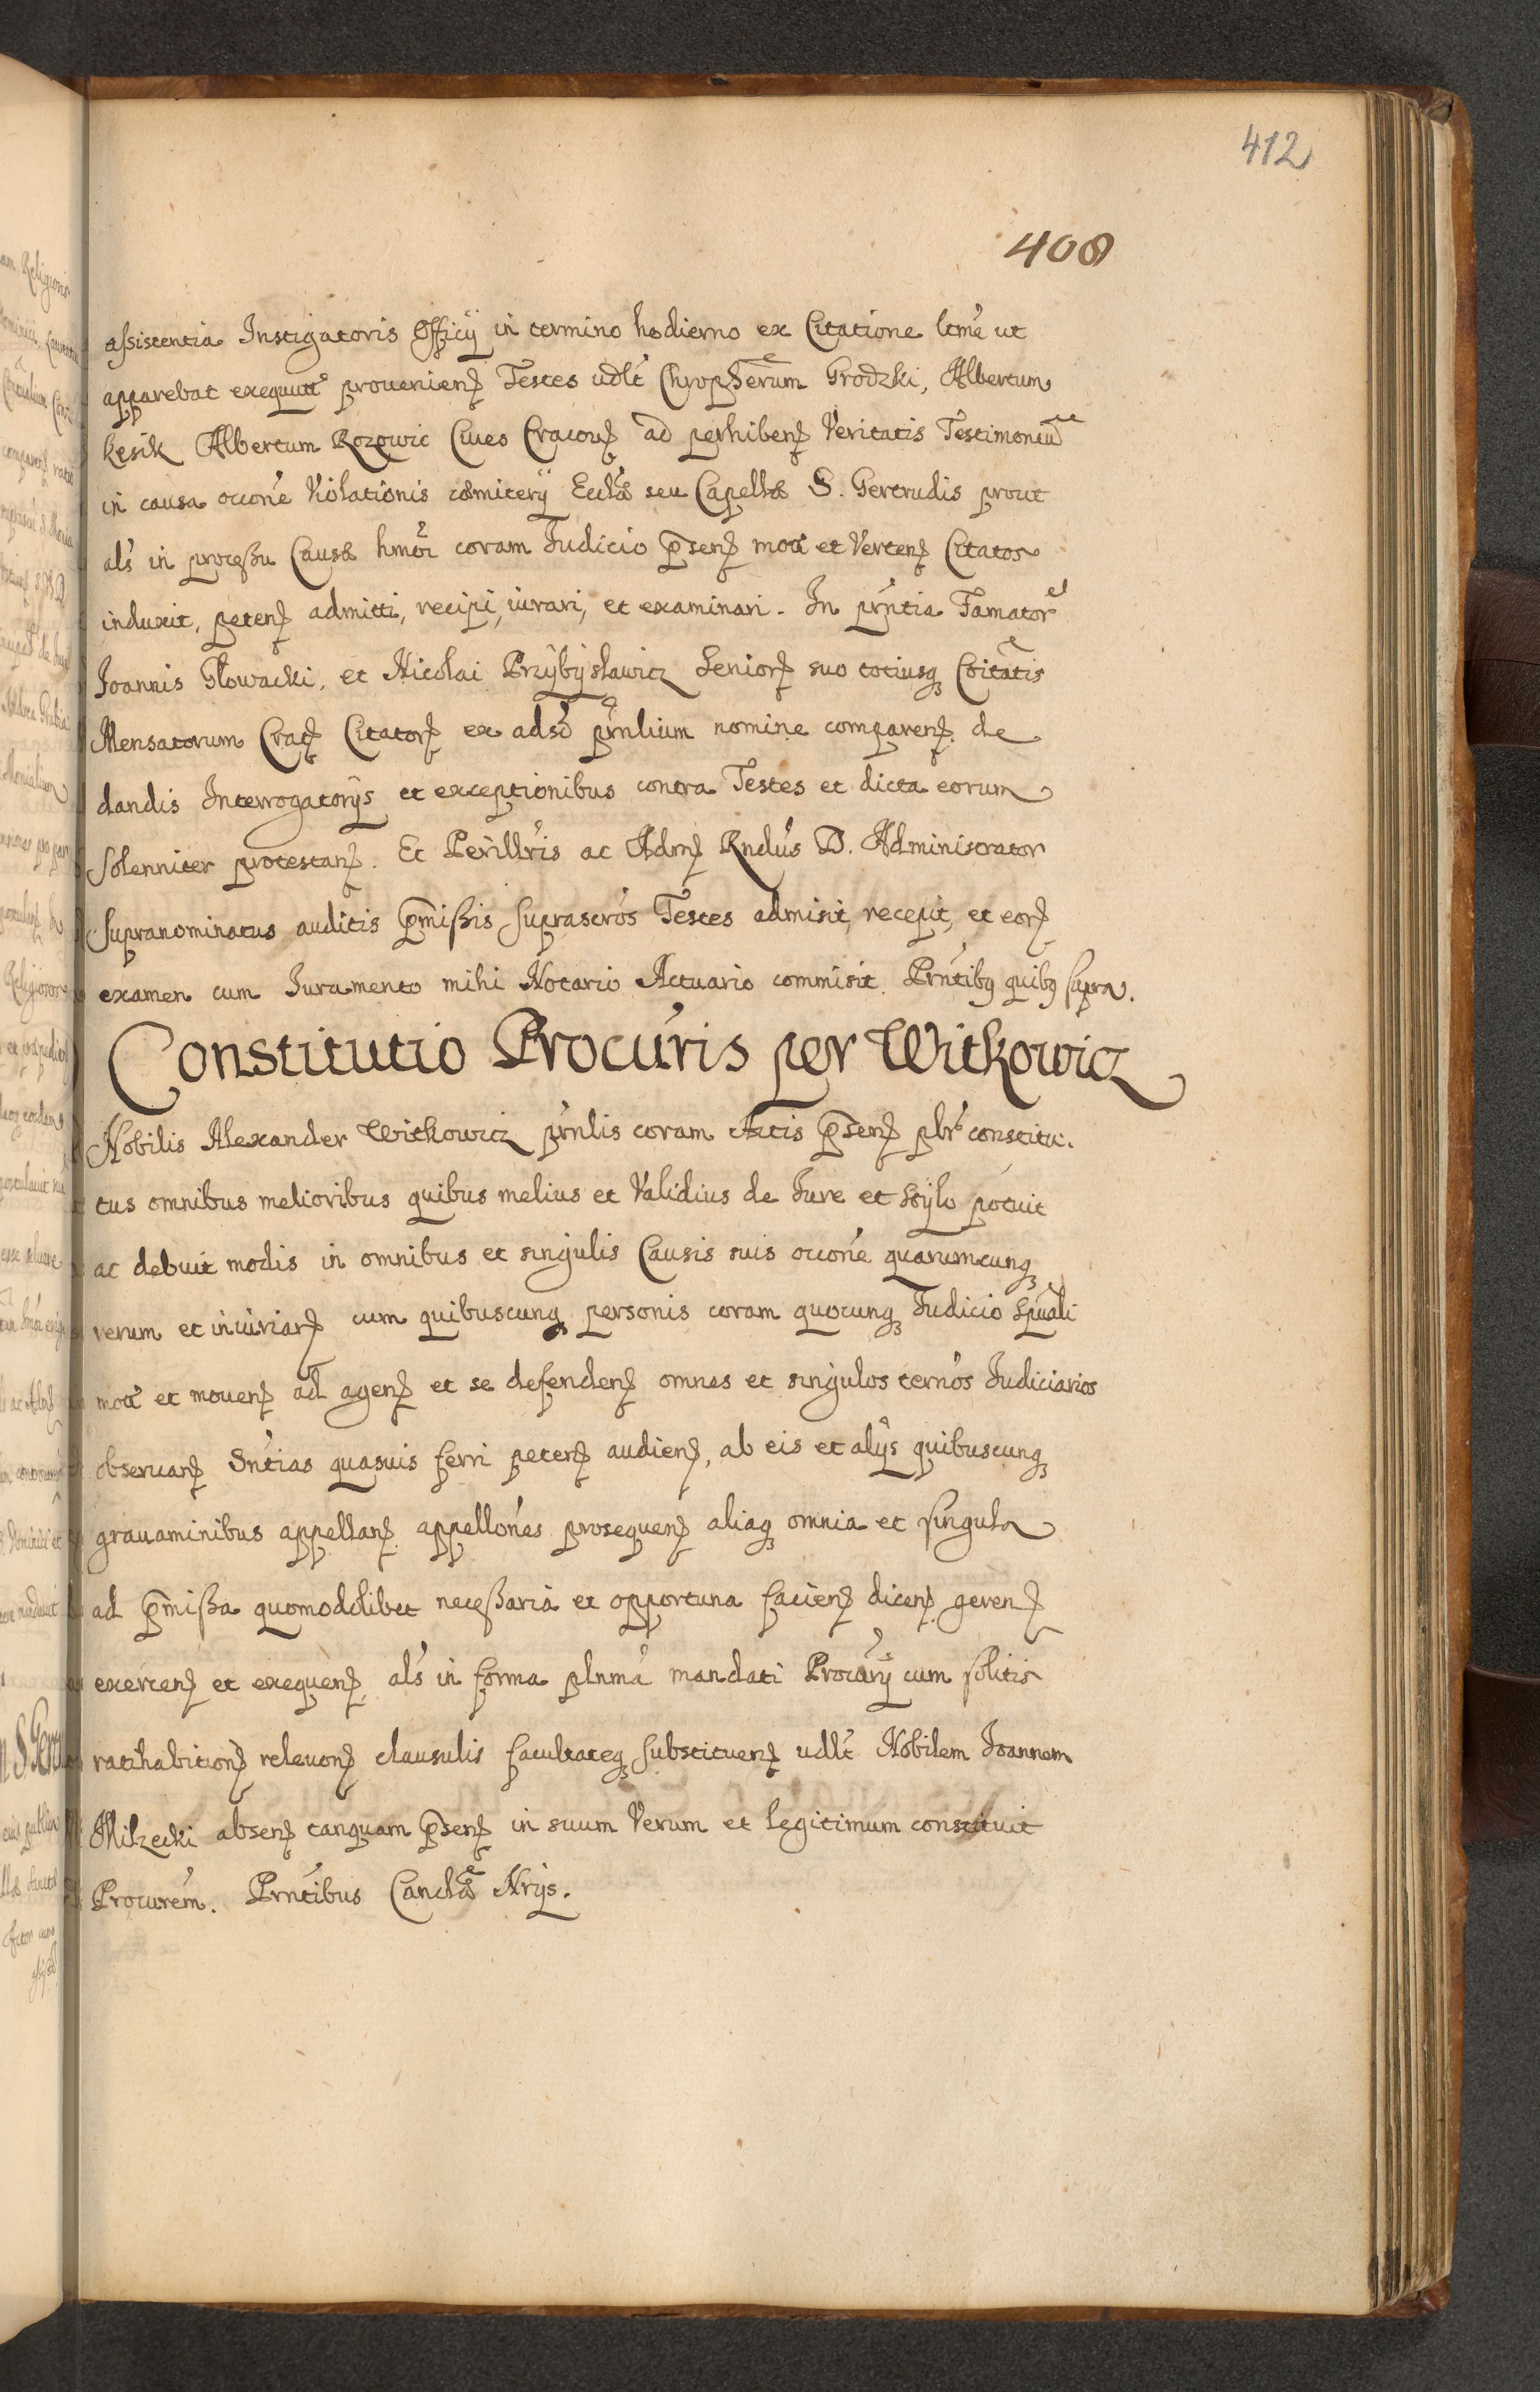 412
408
assistentia Instigatoris Officÿ in termino hodierno ex Citatione ltme ut
apparebat exequutt provenienȝ Testes udlt Chropherum Grodzki, Albertum
Kęsik Albertum Rozowic Cives Cracouȝ ad perhibenȝ Veritatis Testimoniu
in causa occone Violationis cæmiterÿ Ecclæ seu Capellæ S. Gertrudis prout
als in processu Causæ hmoi coram Iudicio p̃senȝ mota et Vertenȝ Citatos
induxit, petenȝ admitti, recipi, iurari, et examinari. In prntia Famator
Joannis Głowacki, et Nicolai Przÿbÿsławicz Seniorȝ suo totiusqȝ Coitatis
Mensatorum Cracȝ Citatorȝ ex adso prnlium nomine comparenȝ de
dandis Interrogatorÿs et exceptionibus contra Testes et dicta eorum
solenniter protestanȝ. Et Perillris ac Admȝ Rndus D. Administrator
supranominatus auditis p̃missis suprascros Testes admisit, recepit, et eorȝ
examen cum Iuramento mihi Notario Actuario commisit. Prntibȝ quibȝ supra.
Constitutio Procuris per Witkowicz
Nobilis Alexander Witkowicz prnlis coram Actis p̃senȝ plr constitu.
tus omnibus melioribus quibus melius et Validius de Iure et Stÿlo potuit
ac debuit modis in omnibus et singulis Causis suis occone quarumcunqȝ
rerum et iniuriarȝ cum quibuscunqȝ personis coram quocunqȝ Iudicio Spuali
mota et mouenȝ ad agenȝ et se defendenȝ omnes et singulos ternos Iudiciarios
obseruanȝ Sntias quasuis ferri petenȝ audienȝ, ab eis et alÿs quibuscunqȝ
grauaminibus appellanȝ appellones prosequenȝ aliaqȝ omnia et singula
ad p̃missa quomodolibet necessaria et opportuna facienȝ dicenȝ gerenȝ
exercenȝ et exequenȝ als in forma plnma mandati Procurÿ cum solitis
ratihabitionȝ releuonȝ clausulis facultateqȝ substituenȝ udlt Nobilem Joannem
Milzecki absenȝ tanquam p̃senȝ in suum Verum et legitimum constituit
Procurem. Prntibus Canclæ Nrÿs.